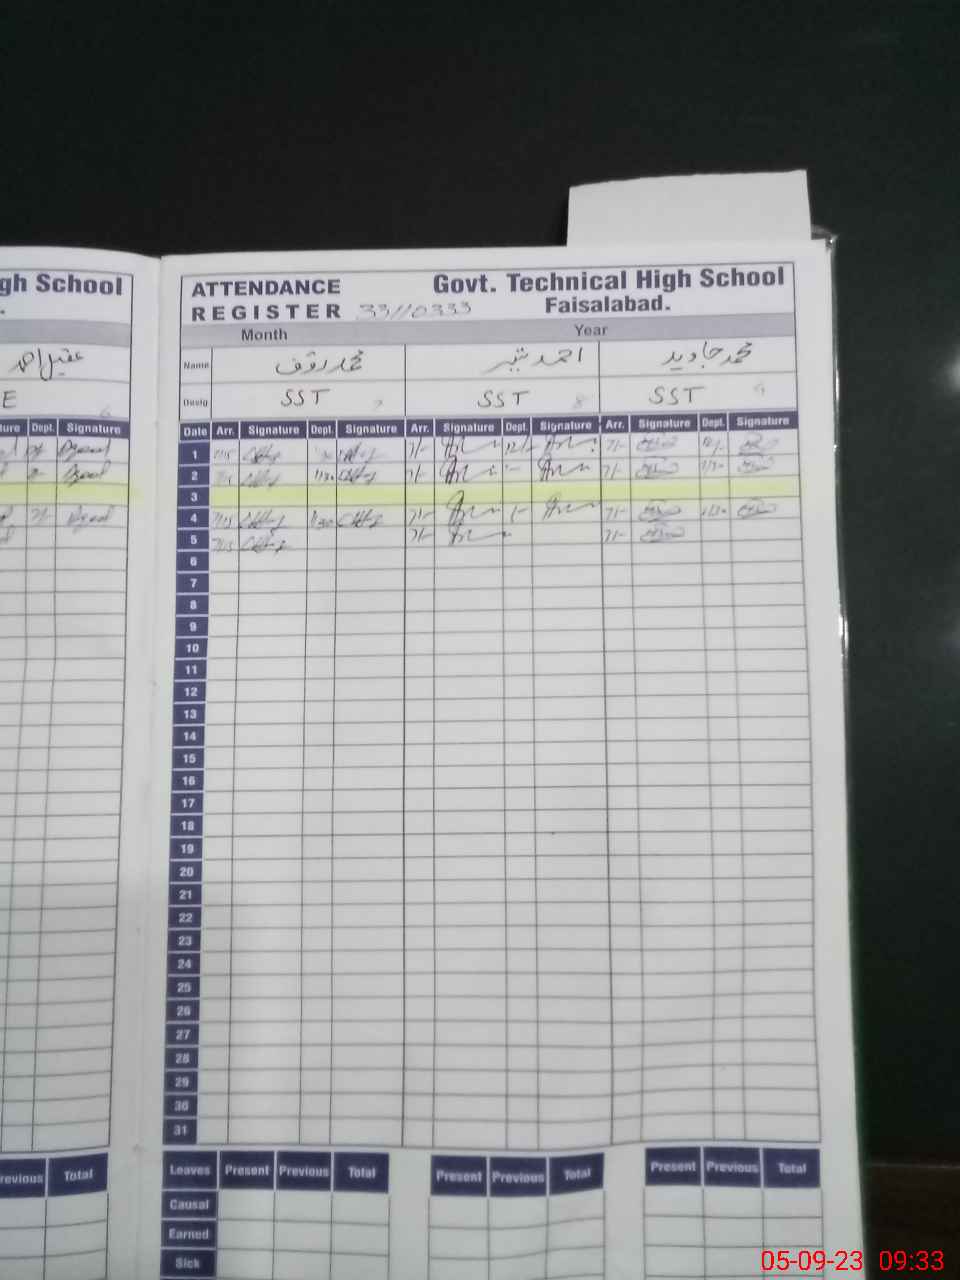 gh School
ATTENDANCE
REGISTER 33110333
Govt. Technical High School
Faisalabad.
Month Year
عقیل احمد
Name محمد رؤف احمد محمد جاوید
E
Desig SST 7 SST 8 SST 9
ture Dept. Signature
Date Arr. Signature Dept. Signature Arr. Signature Dept. Signature Arr. Signature Dept. Signature
1 7/15 7/- 12/- 7/-
2 7/15 1/30 7/- 7/-
3
4 7/15 1/30 7/- 7/-
5 7/15 7/- 7/-
6
7
8
9
10
11
12
13
14
15
16
17
18
19
20
21
22
23
24
25
26
27
28
29
30
31
revious Total
Leaves Present Previous Total Present Previous Total Present Previous Total
Causal
Earned
Sick
05-09-23 09:33